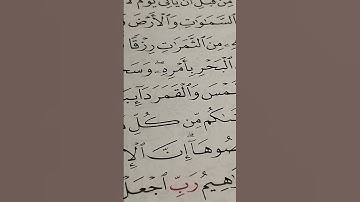 مِّن قَبْلِ أَن يَأْتِيَ يَوْمٌ لَّا
السَّمَٰوَٰتِ وَالْأَرْضَ
مِنَ الثَّمَرَٰتِ رِزْقًا
الْبَحْرِ بِأَمْرِهِۦ ۖ وَسَخَّ
مْسَ وَالْقَمَرَ دَآئِبَ
تَىٰكُم مِّن كُلِّ
صُوهَآ ۗ إِنَّ الْإِ
هِيمُ رَبِّ اجْعَلْ